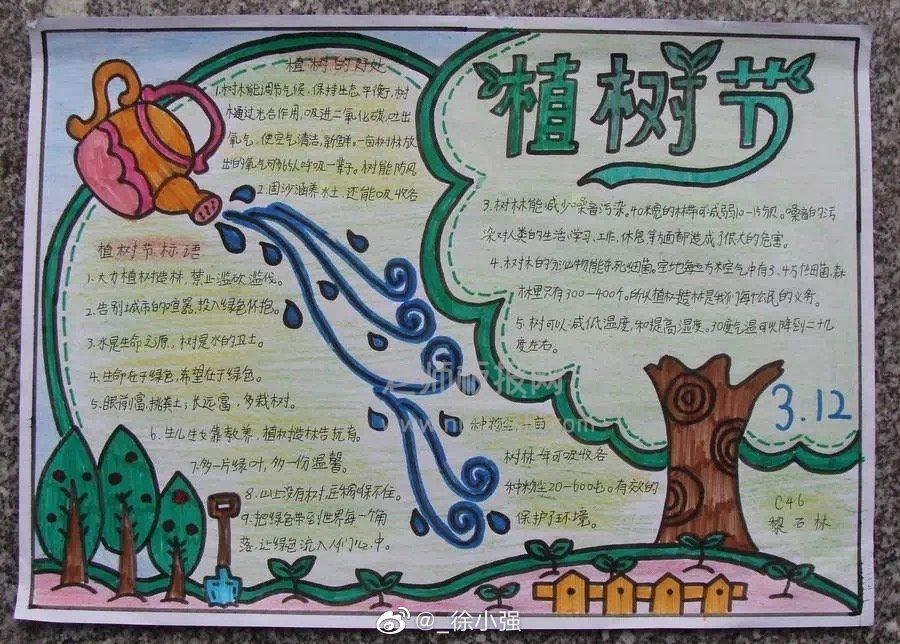 植树节
植树的好处
1.树林能调节气候,保持生态平衡,树
林通过光合作用,吸进二氧化碳,吐出
氧气,使空气清洁、新鲜。一亩树林放
出的氧气可够65人呼吸一辈子。树能防风
2.固沙涵养水土,还能吸收各
种粉尘,一亩
树林一年可吸收各
种粉尘20-600屯。有效的
保护了环境。
3.树林能减少噪音污染。40米宽的林带可减弱10-15分贝。噪音的污
染对人类的生活、学习、工作、休息等方面都造成了很大的危害。
4.树木的分泌物能杀死细菌。空地每立方米空气中有3、4万仹细菌,森
林里只有300-400个。所以植树造林是我们每个公民的义务。
5.树可以减低温度,和提高湿度。30度气温可以降到二十九
度左右。
植树节标语
1.大力植树造林,禁止滥砍滥伐。
2.告别城市的喧嚣,投入绿色怀抱。
3.水是生命之原,树是水的卫士。
4.生命在于绿色,希望在于绿色。
5.眼前富,挑粪土;长远富,多栽树。
6.生儿生女靠教养,植树造林告抚育。
7.多一片绿叶,多一份温馨。
8.山上没有树,庄稼保不住。
9.把绿色带到世界每一个角
落,让绿色流入人们心中。
3.12
C46
黎石林
老师板报网
@_徐小强